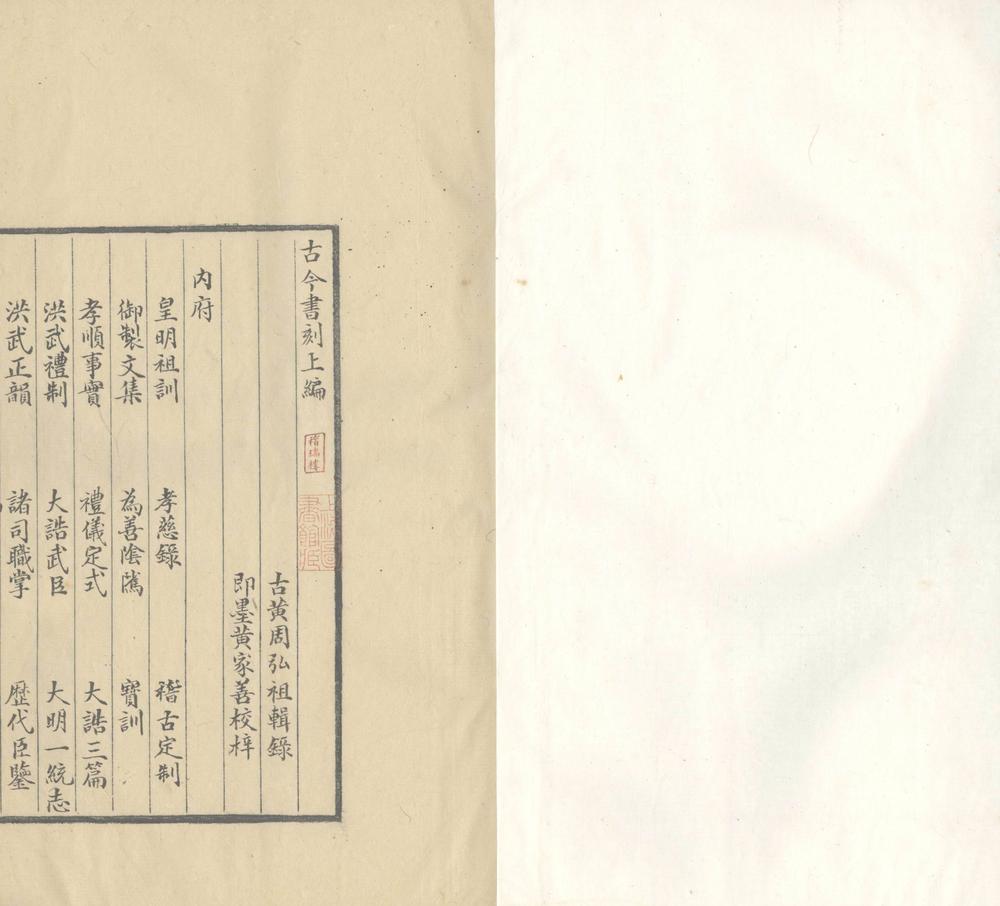 古今書刻上編
稽瑞樓
古黄周弘祖輯錄
即墨黄家善校梓
内府
皇明祖訓 孝慈錄 稽古定制
御製文集 為善陰隲 寶訓
孝順事實 禮儀定式 大誥三篇
洪武禮制 大誥武臣 大明一統志
洪武正韻 諸司職掌 歷代臣鑒